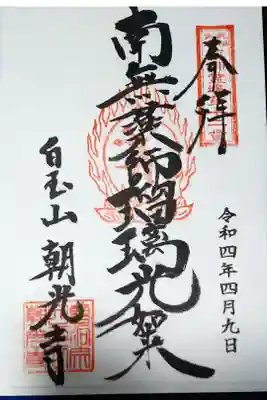 奉拝
令和四年四月九日
南無薬師瑠璃光如来
白玉山 朝光寺